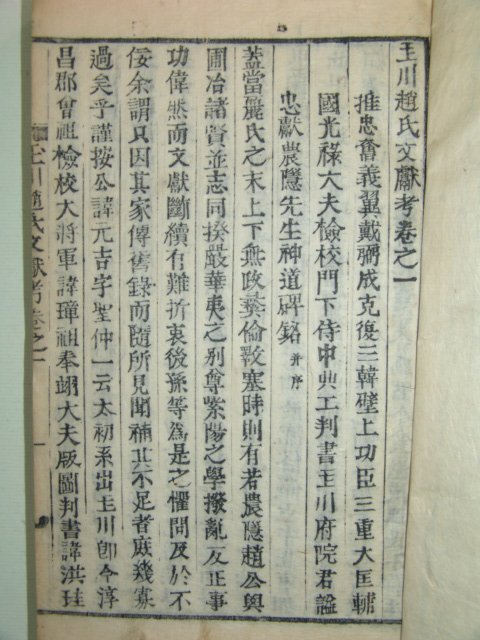 玉川趙氏文獻考卷之一
推忠奮義翼戴弼成克復三韓壁上功臣三重大匡輔
國光祿大夫檢校門下侍中典工判書玉川府院君諡
忠獻農隱先生神道碑銘 幷序
蓋當麗氏之末上下無政彜倫斁塞時則有若農隱趙公與
圃冶諸賢並志同揆嚴華夷之別尊紫陽之學撥亂反正事
功偉然而文獻斷續有難折衷後孫等爲是之懼問及於不
佞余謂只因其家傳舊錄而隨所見聞補其不足者庶幾寡
過矣乎謹按公諱元吉字聖仲一云太初系出玉川卽今淳
昌郡曾祖檢校大將軍諱璋祖奉翊大夫版圖判書諱洪珪
玉川趙氏文獻考卷之一
一